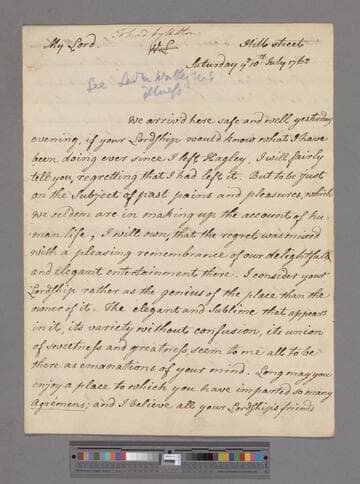 My Lord.
Hill Street
Saturday ye 10th July 1762
See Lord
illness
We arriv'd here safe and well yesterday
evening, if your Lordship would know what I have
been doing ever since I left Hagley, I will fairly
tell you, regretting that I had left it. But to be just
on the Subject of past pains and pleasures, which
we seldom are in making up the account of hu-
man life, I will own, that the regret was mixed
with a pleasing remembrance of our delightfull
and elegant entertainment there. I consider your
Lordship rather as the genius of the place than the
owner of it. The elegant and Sublime that appears
in it, its variety without confusion, its union
of sweetness and greatness, seem to me all to be
there as emanations of your mind. Long may you
enjoy a place to which you have imparted so many
agremens, and I believe all your Lordship's friends